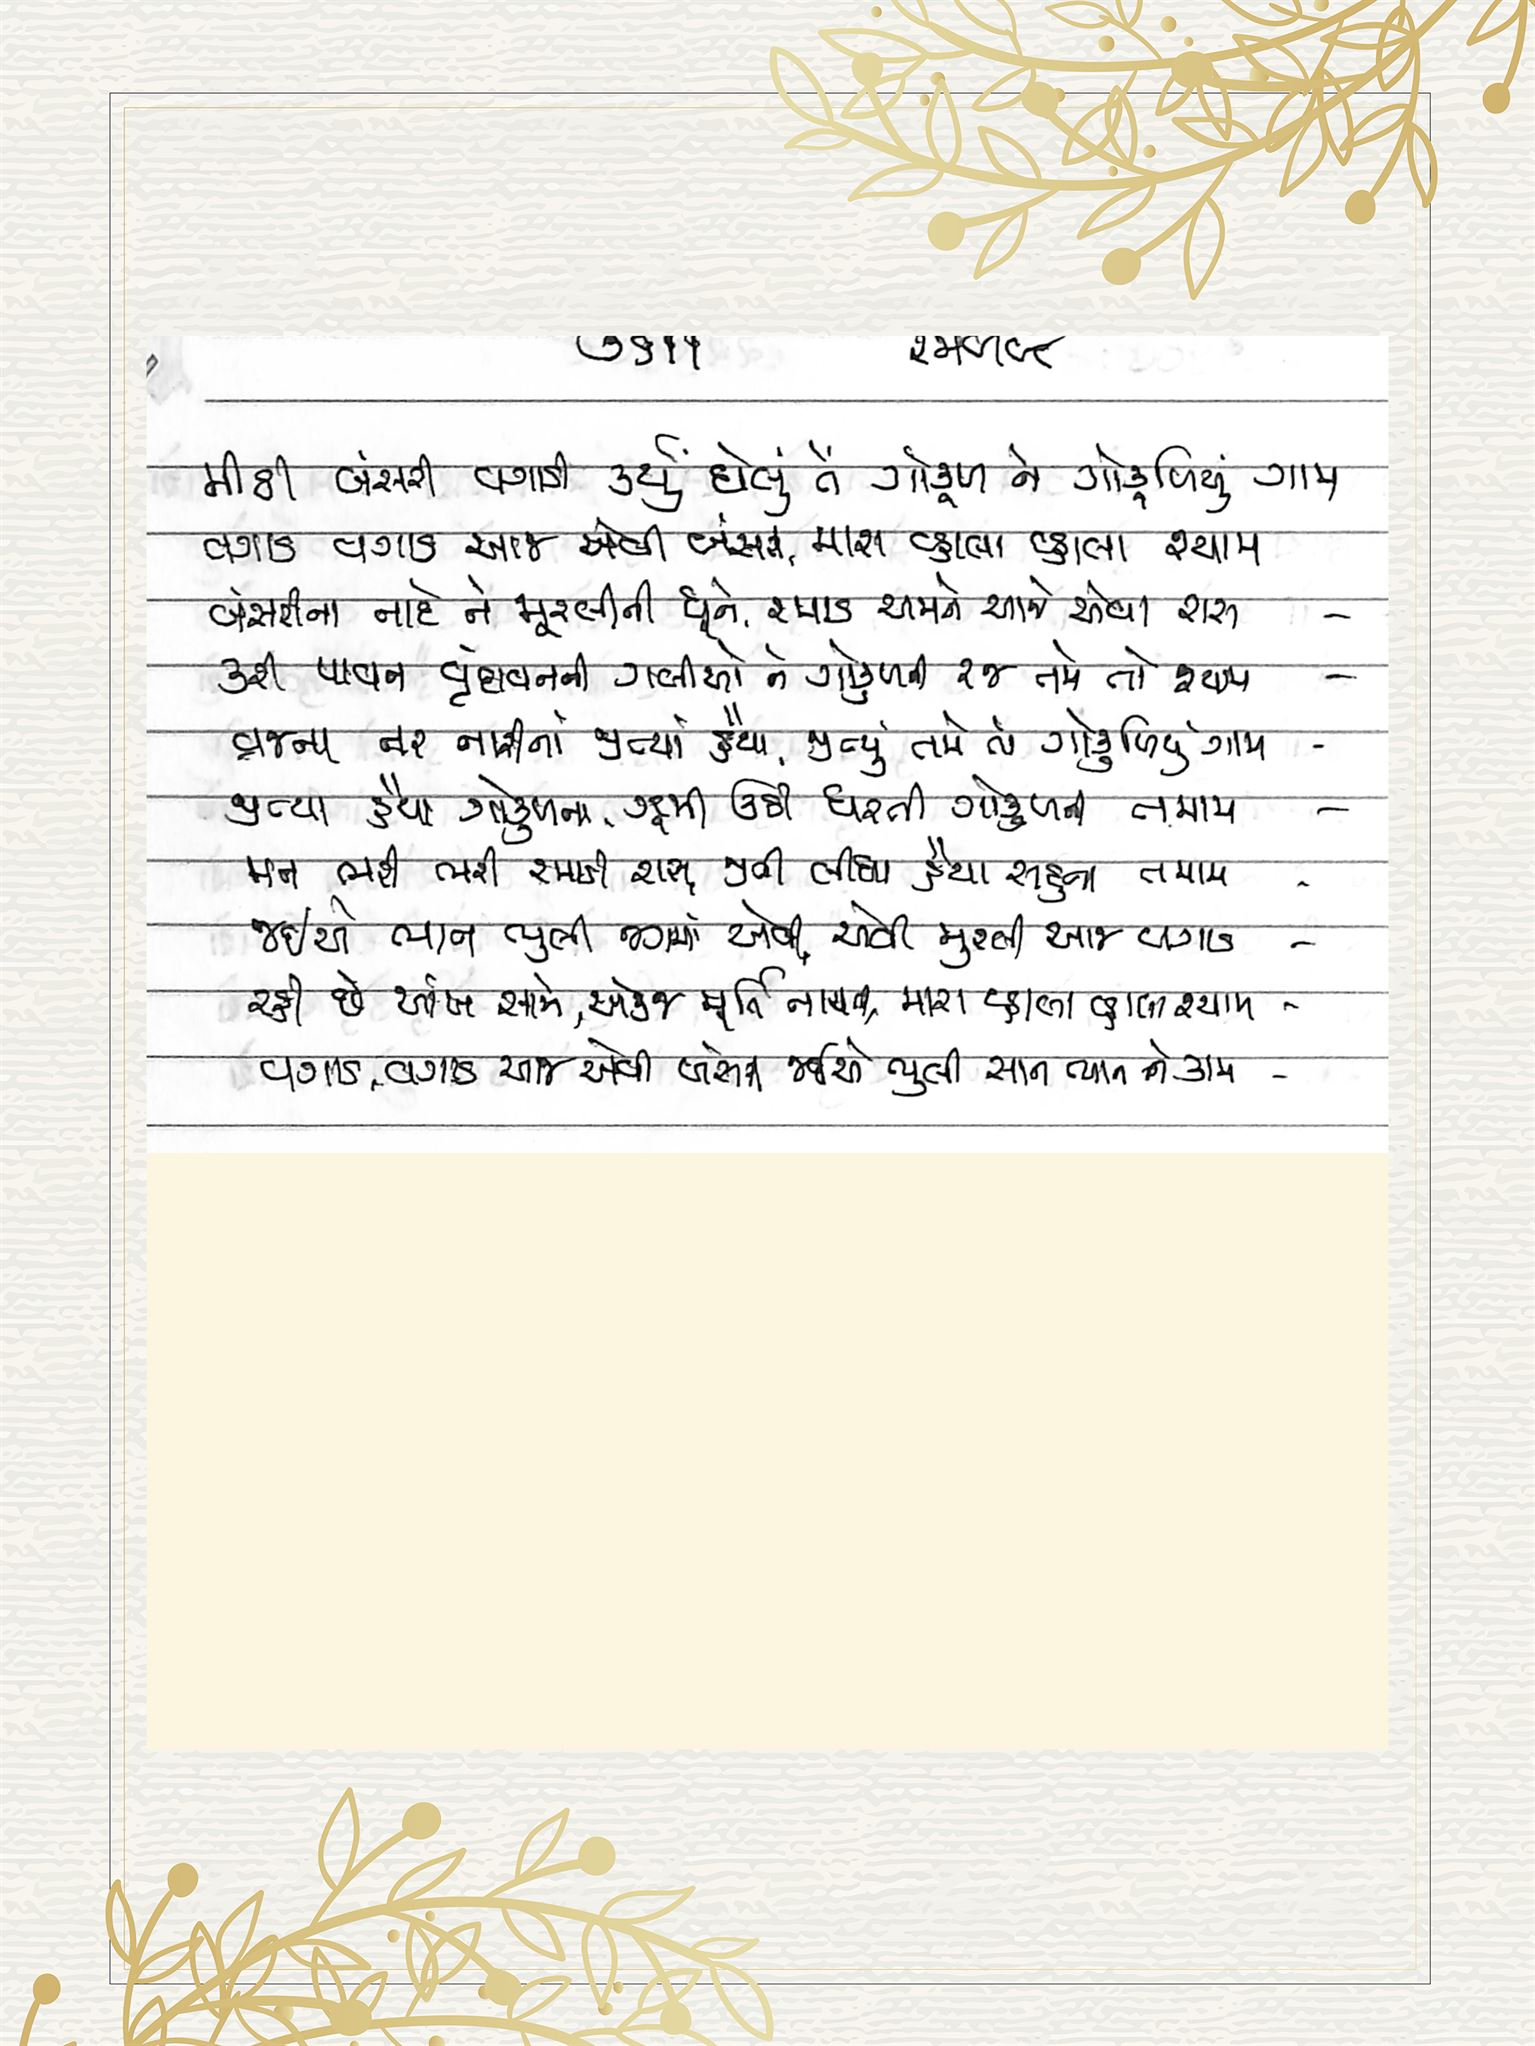 મીઠી બંસરી વગાડી કર્યું ઘેલું તેં ગોકૂળ ને ગોકૂળિયું ગામ
વગાડ વગાડ આજ એવી બંસરી, મારા વ્હાલા વ્હાલા શ્યામ
બંસરીના નાદે ને મૂરલીની ધૂને, રમાડ અમને આજે એવા રાસ –
કરી પાવન વૃંદાવનની ગલીઓ ને ગોકુળની રજ તમે તો શ્યામ –
વ્રજના નર નારીનાં જીત્યાં હૈયા, જીત્યું તમે તો ગોકુળિયું ગામ -
જીત્યા હૈયા ગોકુળના, ઝૂમી ઉઠી ધરતી ગોકુળની તમામ –
મન ભરી ભરી રમાડી રાસ, જીતી લીધા હૈયા સહુના તમામ -
જઈએ ભાન ભુલી જગમાં એવી, એવી મુરલી આજ વગાડ –
રહી છે આંખ સામે, એકજ મૂર્તિ મારા વ્હાલા વ્હાલા શ્યામ -
વગાડ, વગાડ આજ એવી બંસરી જઈએ ભુલી સાન ભાન ને કામ -